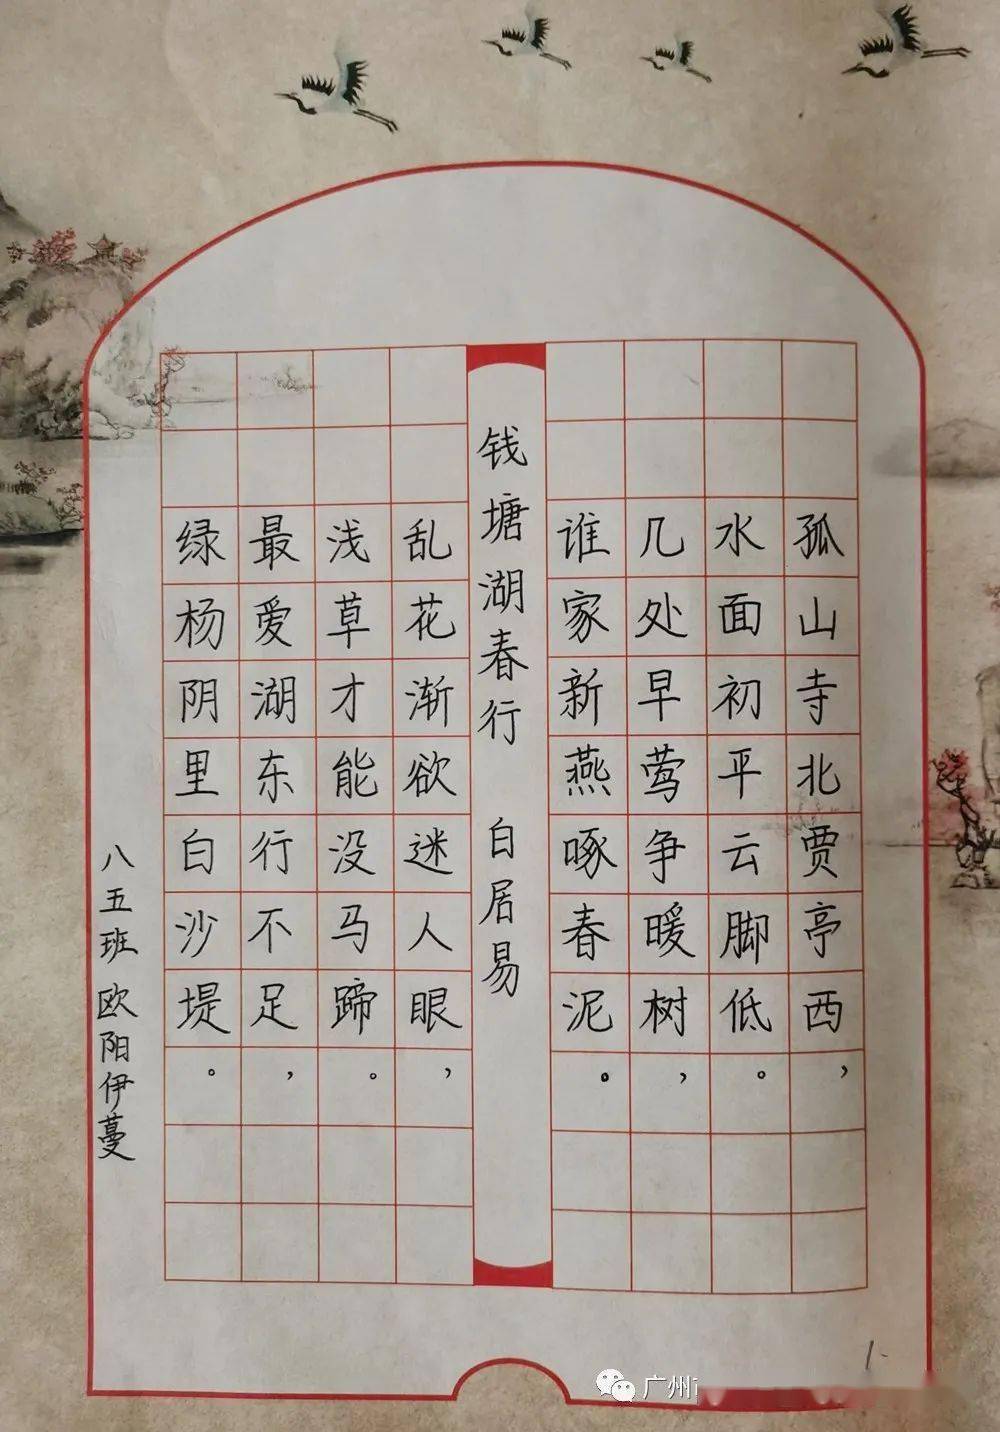 孤山寺北贾亭西，
水面初平云脚低。
几处早莺争暖树，
谁家新燕啄春泥。
钱塘湖春行 白居易
乱花渐欲迷人眼，
浅草才能没马蹄。
最爱湖东行不足，
绿杨阴里白沙堤。
八五班 欧阳伊蔓
广州